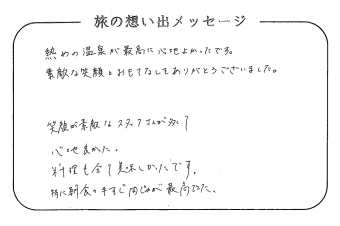 旅の想い出メッセージ
熱めの温泉が最高に心地よかったです。
素敵な笑顔とおもてなしをありがとうございました。
笑顔が素敵なスタッフさんが多く
心地良かった。
料理も全て美味しかったです。
特に朝食の牛すじ肉じゃが最高でした。